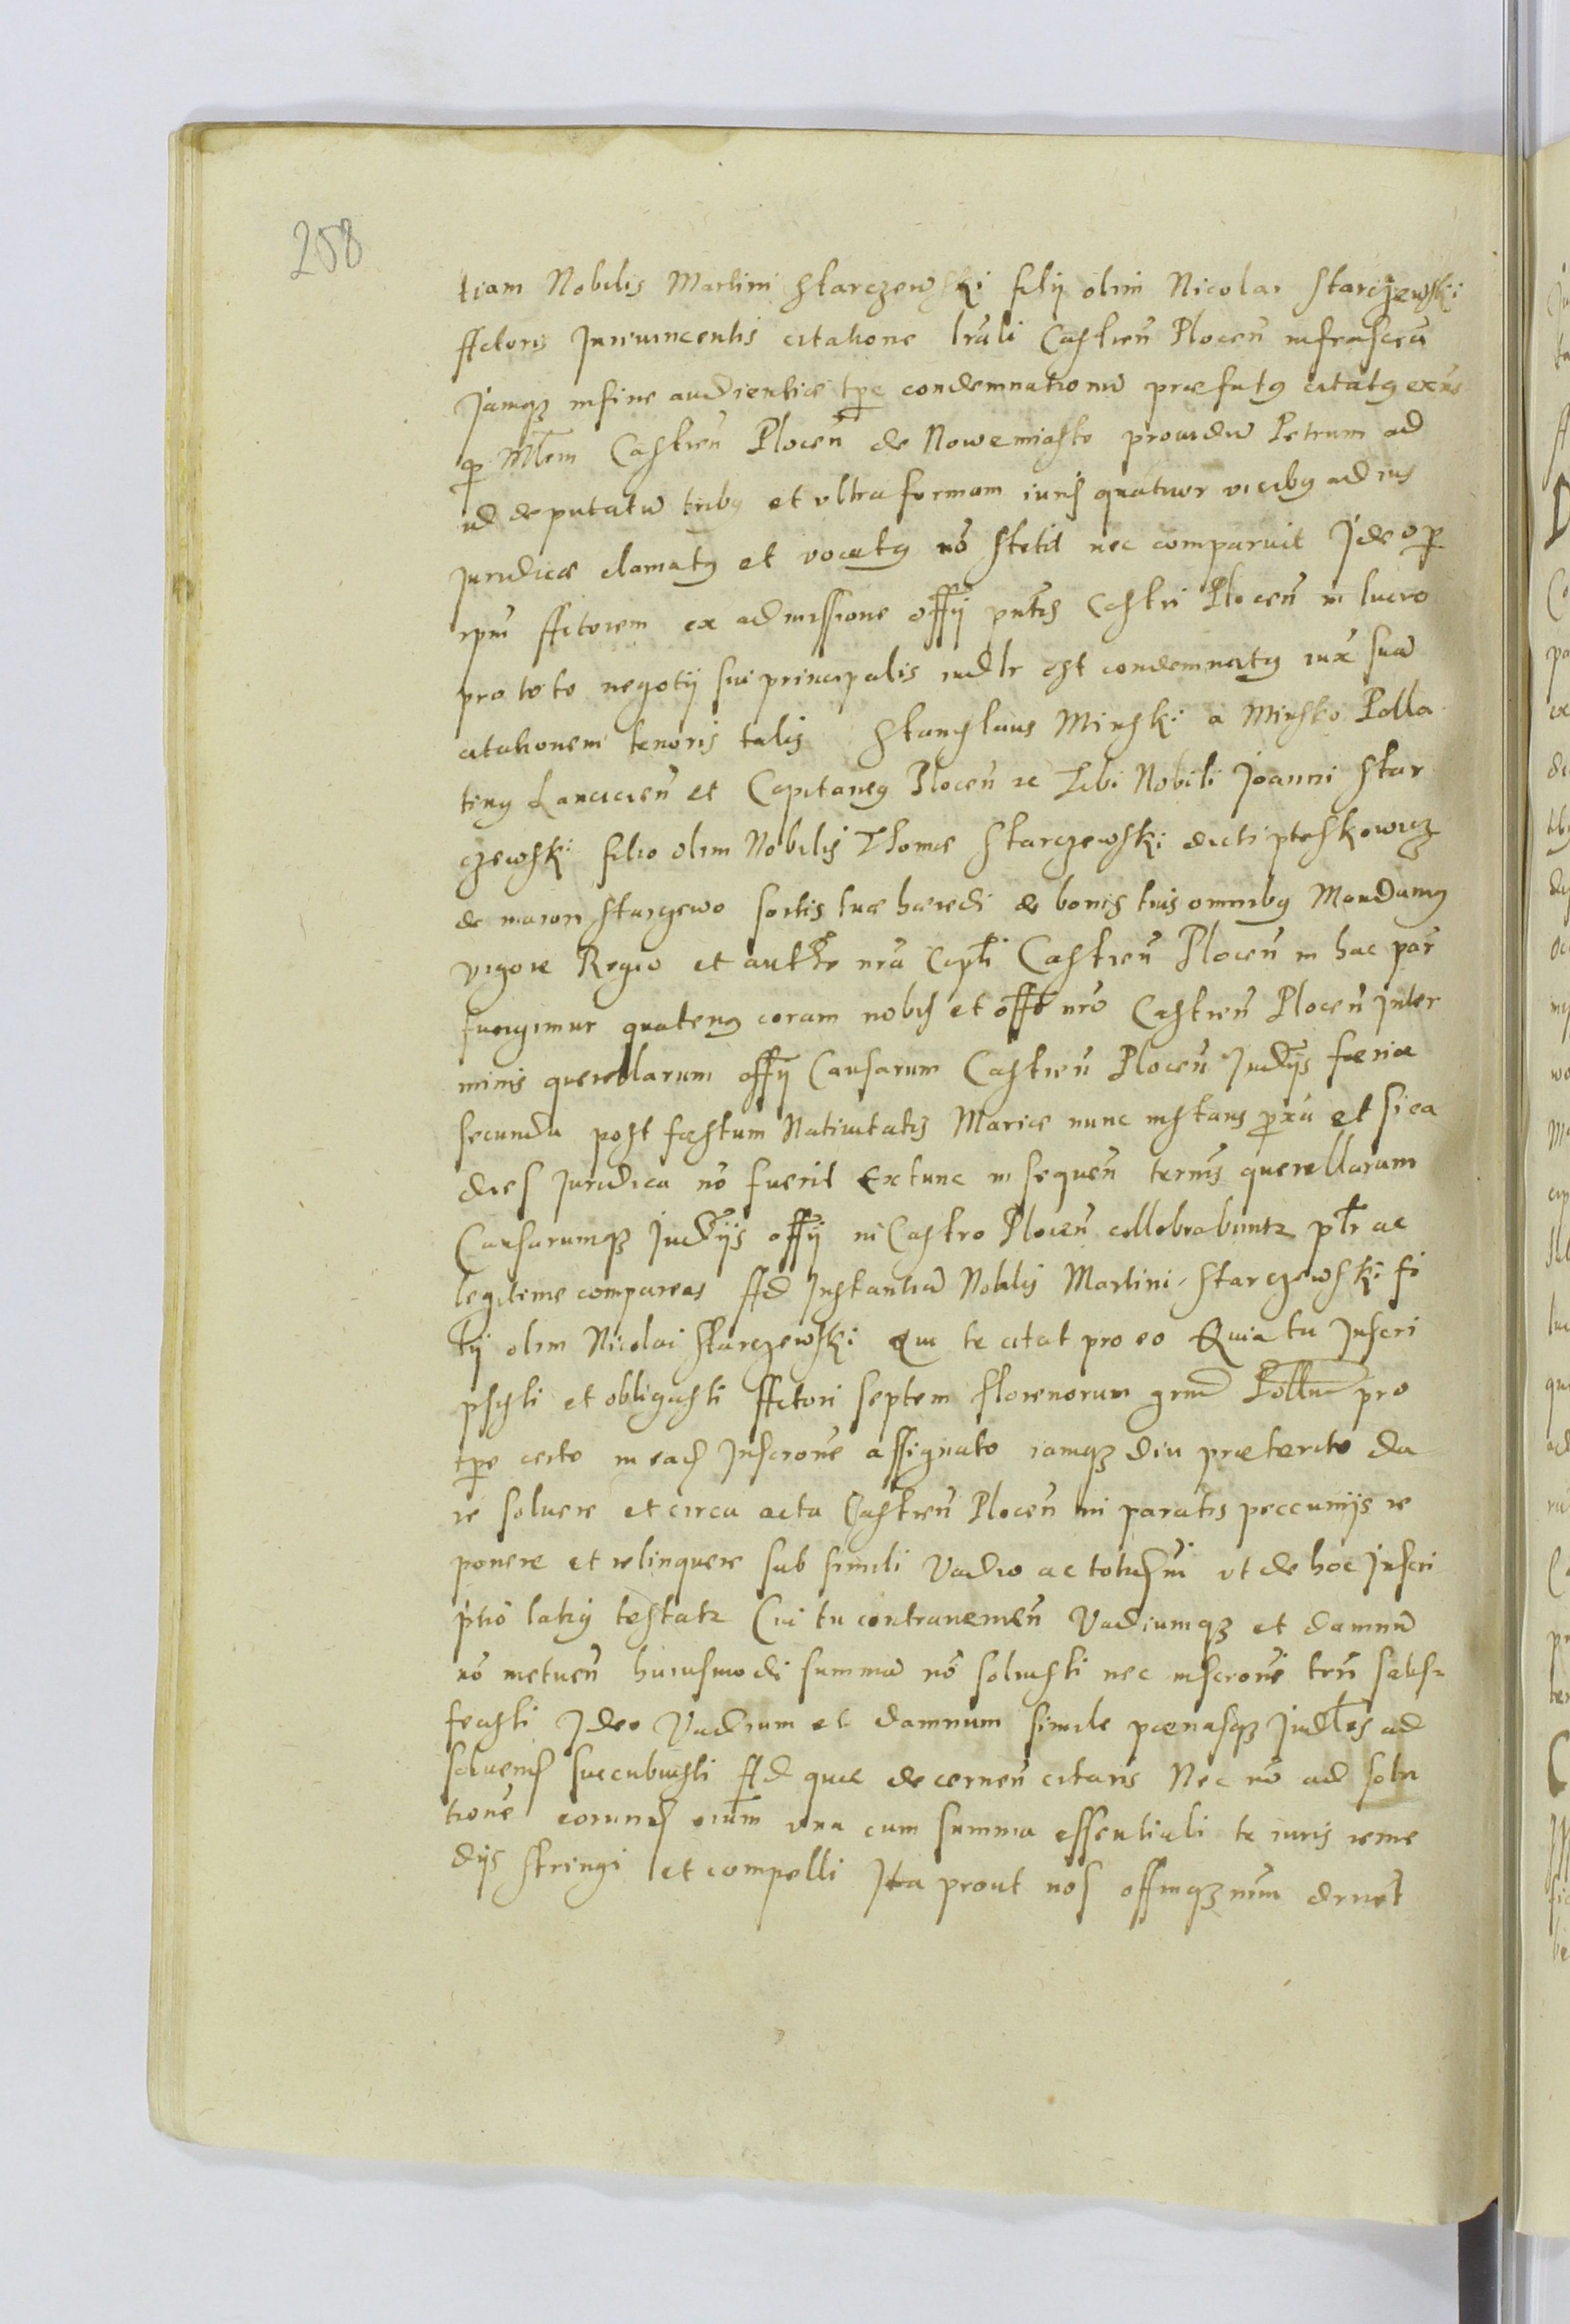 258
tiam Nobilis Martini Starczewski filij olim Nicolai Starczewski
Actoris Inniuncentis citatione lr̃ali Castren̄ Plocen̄ infrascr̄a
Jamqꝫ in fine audientiæ tp̄e condemnationū præfatꝰ citatꝰ ex tūs
p̲ Mlēm Castren̄ Plocen̄ de Nowemiasto prouidū Petrum ad
id deputatū tribꝰ et vltra formam iuris quatuor vicibꝰ ad ius
Juridice clamatꝰ et vocatꝰ nō stetit nec comparuit Ideo p̲
ipm̄ Actorem ex admissione offij pn̄tis Castri Plocen̄ in lucro
pro toto negotij sui principalis iudlr est condemnatꝰ iux̄ suā
citationem tenoris talis Stanislaus Minski a Minsko Palla
tinꝰ Lancicien̄ et Capitaneꝰ Plocen̄ ꝛc Tibi Nobili Joanni Star
czewski filio olim Nobilis Thomæ Starczewski dicti ptaskowicz
de maiori Starczewo sortis tuæ hæredi de bonis tuis omnibꝰ Mandamꝰ
vigore Regio et autte nr̄a Capłi Castren̄ Plocen̄ in hac par̄
fungimur quatenꝰ coram nobis et offō nr̄o Castren̄ Plocen̄ in ter
minis querellarum offij Causarum Castren̄ Plocen̄ Judijs feria
secunda post festum Natiuitatis Mariæ nunc instans px̄a et si ea
dies Juridica nō fuerit Extunc in sequen̄ termis querellarum
Causarumqꝫ Judijs offij in Castro Plocen̄ cellebrabuntꝛ pł̄r ac
legitime compareas Ad Instantiā Nobilis Martini Starczewski fi
lij olim Nicolai Starczewski Qui te citat pro eo Quia tu Inscri
psisti et obligasti Actori septem florenorum grm̄ Pollić pro
tp̄e certo in eadꝭ Inscr̄one assignato iamqꝫ diu præterito da
re soluere et circa acta Castren̄ Plocen̄ in paratis peccunijs re
ponere et relinquere sub simili Vadio ac totidē ut de hoc Inscri
ptiō latiꝰ testatꝛ Cui tu contrauenien̄ Vadiumqꝫ et damnū
nō metuen̄ huiusmodi summā nō soluisti nec inscr̄oni tuæ satis
fecisti Ideo Vadium et damnum simile pænasqꝫ Judłes ad
soluendꝭ succubuisti Ad quæ decernen̄ citaris Nec nō ad solu
tionē eorundꝭ oiūm una cum summa essentiali te iuris reme
dijs stringi et compelli Ita prout nos offmqꝫ nr̄m dr̄uet